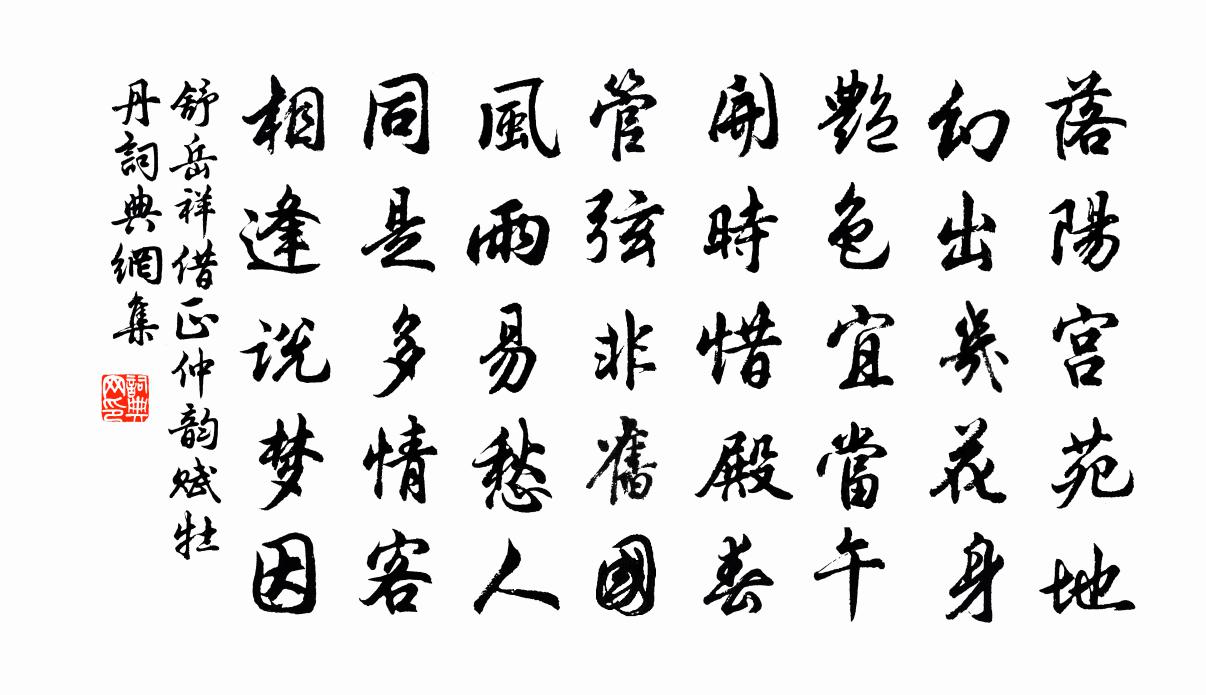 落陽宫苑地
幻出幾花身
艷色宜當午
開時惜殿春
管弦非舊國
風雨易愁人
同是多情客
相逢説梦因
舒岳祥借正仲韵赋牡
丹詞典網集
詞典网印